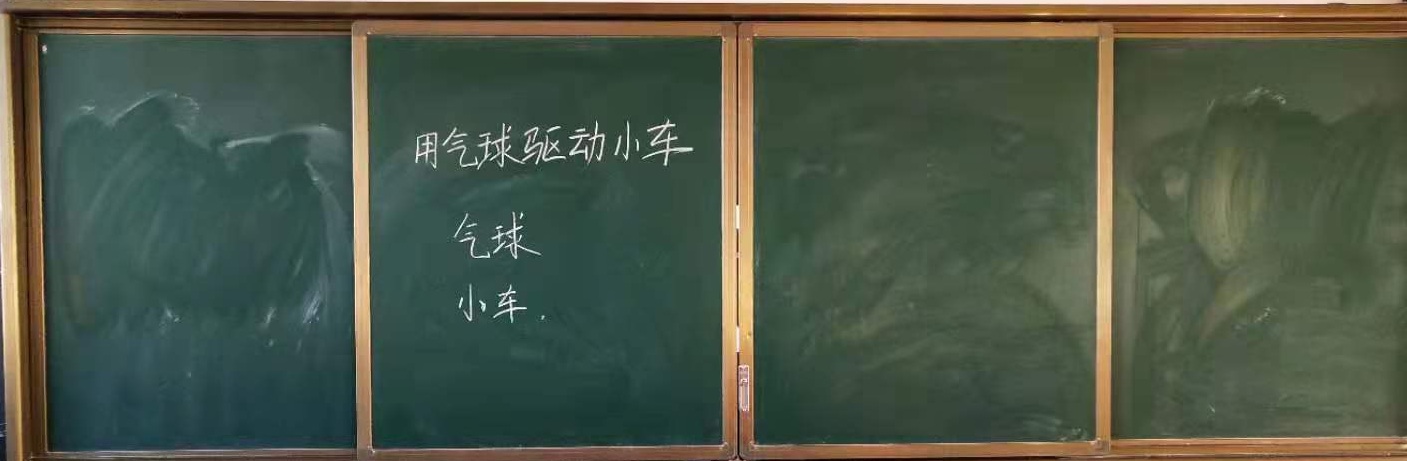 用气球驱动小车
气球
小车.